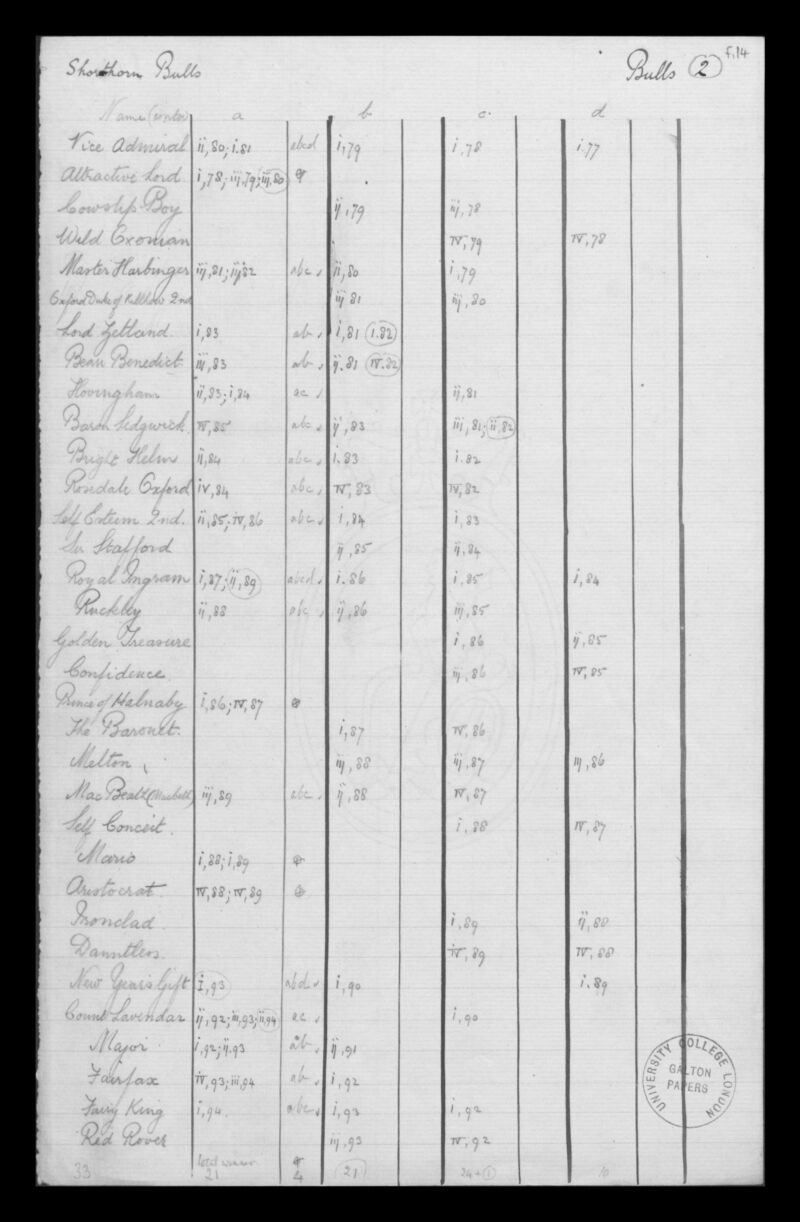 f.14
Shorthorn Bulls Bulls 2
Name a b c d
Vice Admiral ii,80; i.81 abcd i,79 i,78 i.77
Attractive Lord i,78; iij,79; iij,80
Cowslip Boy ij,79 iij,78
Wild Exonian IV,79 IV,78
Master Harbinger iij,81; iij82 abc ii,80 i,79
Oxford Duke of Killhow 2nd iij 81 iij,80
Lord Zetland i,83 ab i,81 1.82
Beau Benedict iij,83 ab ij.81 IV.82
Hovingham ii,83; i,84 ac ij,81
Baron Sedgwick IV,85 abc ij,83 iij,81; ii,82
Bright Helm ii,84 abc i.83 i.82
Rosedale Oxford iv,84 abc IV,83 IV,82
Self Esteem 2nd. ii,85; iv,86 abc i,84 i,83
Sir Stafford ij,85 ij,84
Royal Ingram i,87; ij,89 abcd i.86 i,85 i,84
Ruckley ij,88 abc ij,86 iij,85
Golden Treasure i,86 ij,85
Confidence iij,86 IV,85
Prince of Halnaby i,86; IV,87
The Baronet. i,87 IV,86
Melton iij,88 iij,87 iij,86
Mac Beath (Macbeth) iij,89 abc ij,88 IV,87
Self Conceit. i,88 IV,87
Mario i,88; i,89
Aristocrat IV,88; IV,89
Ironclad i,89 ij,88
Dauntless. iv,89 IV,88
New Year's Gift I,93 abd i,90 i.89
Count Lavendar ij,92; iii,93; ii,94 ac i,90
Major i,92; ij.93 ab ij,91
Fairfax IV,93; iii,94 ab i,92
Fairy King i,94. abc i,93 i,92
Red Rover iij,93 IV,92
33 21 4 21 24+1 10
UNIVERSITY COLLEGE LONDON
GALTON
PAPERS